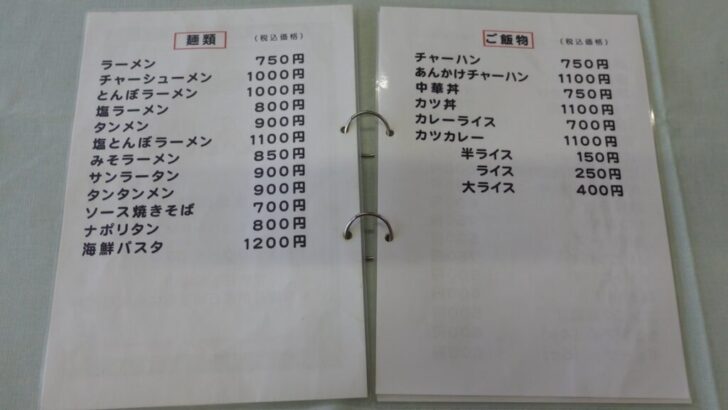 麺類 (税込価格)
ラーメン 750円
チャーシューメン 1000円
とんぼラーメン 1000円
塩ラーメン 800円
タンメン 900円
塩とんぼラーメン 1100円
みそラーメン 850円
サンラータン 900円
タンタンメン 900円
ソース焼きそば 700円
ナポリタン 800円
海鮮パスタ 1200円
ご飯物 (税込価格)
チャーハン 750円
あんかけチャーハン 1100円
中華丼 750円
カツ丼 1100円
カレーライス 700円
カツカレー 1100円
半ライス 150円
ライス 250円
大ライス 400円